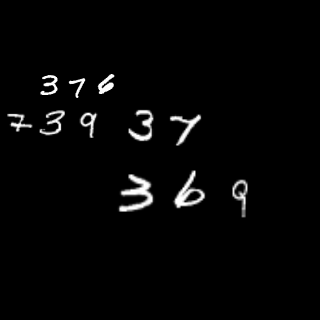 376
739 37
369